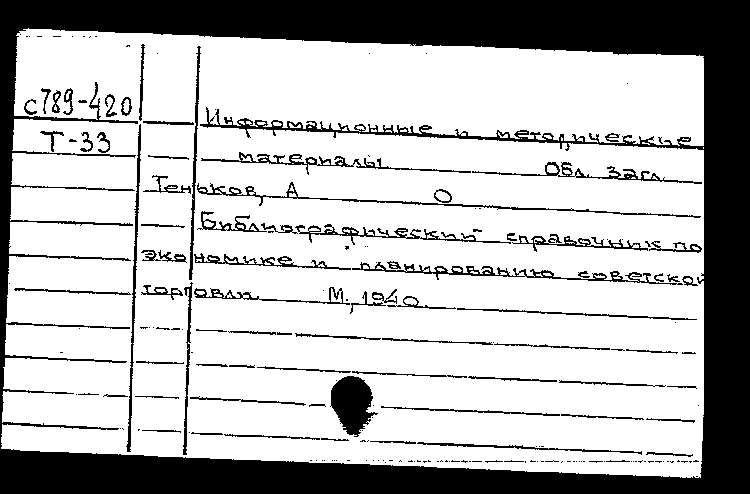 с789-420
Т-33
Информационные и методические
материалы Обл. загл.
Теньков, А О
Библиографический справочник по
экономике и планированию советской
торговли М., 1940.